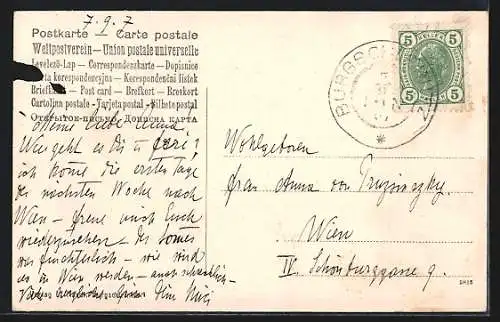 7.9.7
Postkarte — Carte postale
Weltpostverein — Union postale universelle
Levelező-Lap — Correspondenzkarte — Dopisnice
Karta korespondencyjna — Korespondenční lístek
Briefkaart — Post card — Brefkort — Brevkort
Cartolina postale — Tarjeta postal — Bilhete postal
ОТКРЫТОЕ ПИСЬМО — ДОПИСНА КАРТА
Meine liebe
Wie geht es Dir u
ich komme die ersten Tage
der nächsten Woche nach
Wien — freue mich Euch
wiederzusehen — der Sommer
war fürchterlich — wie wird
es in Wien werden — auch schrecklich —
Deine Mizi
5 5
5 5
Wohlgeboren
Frau Anna von
Wien
IV. Schönburggasse 9.